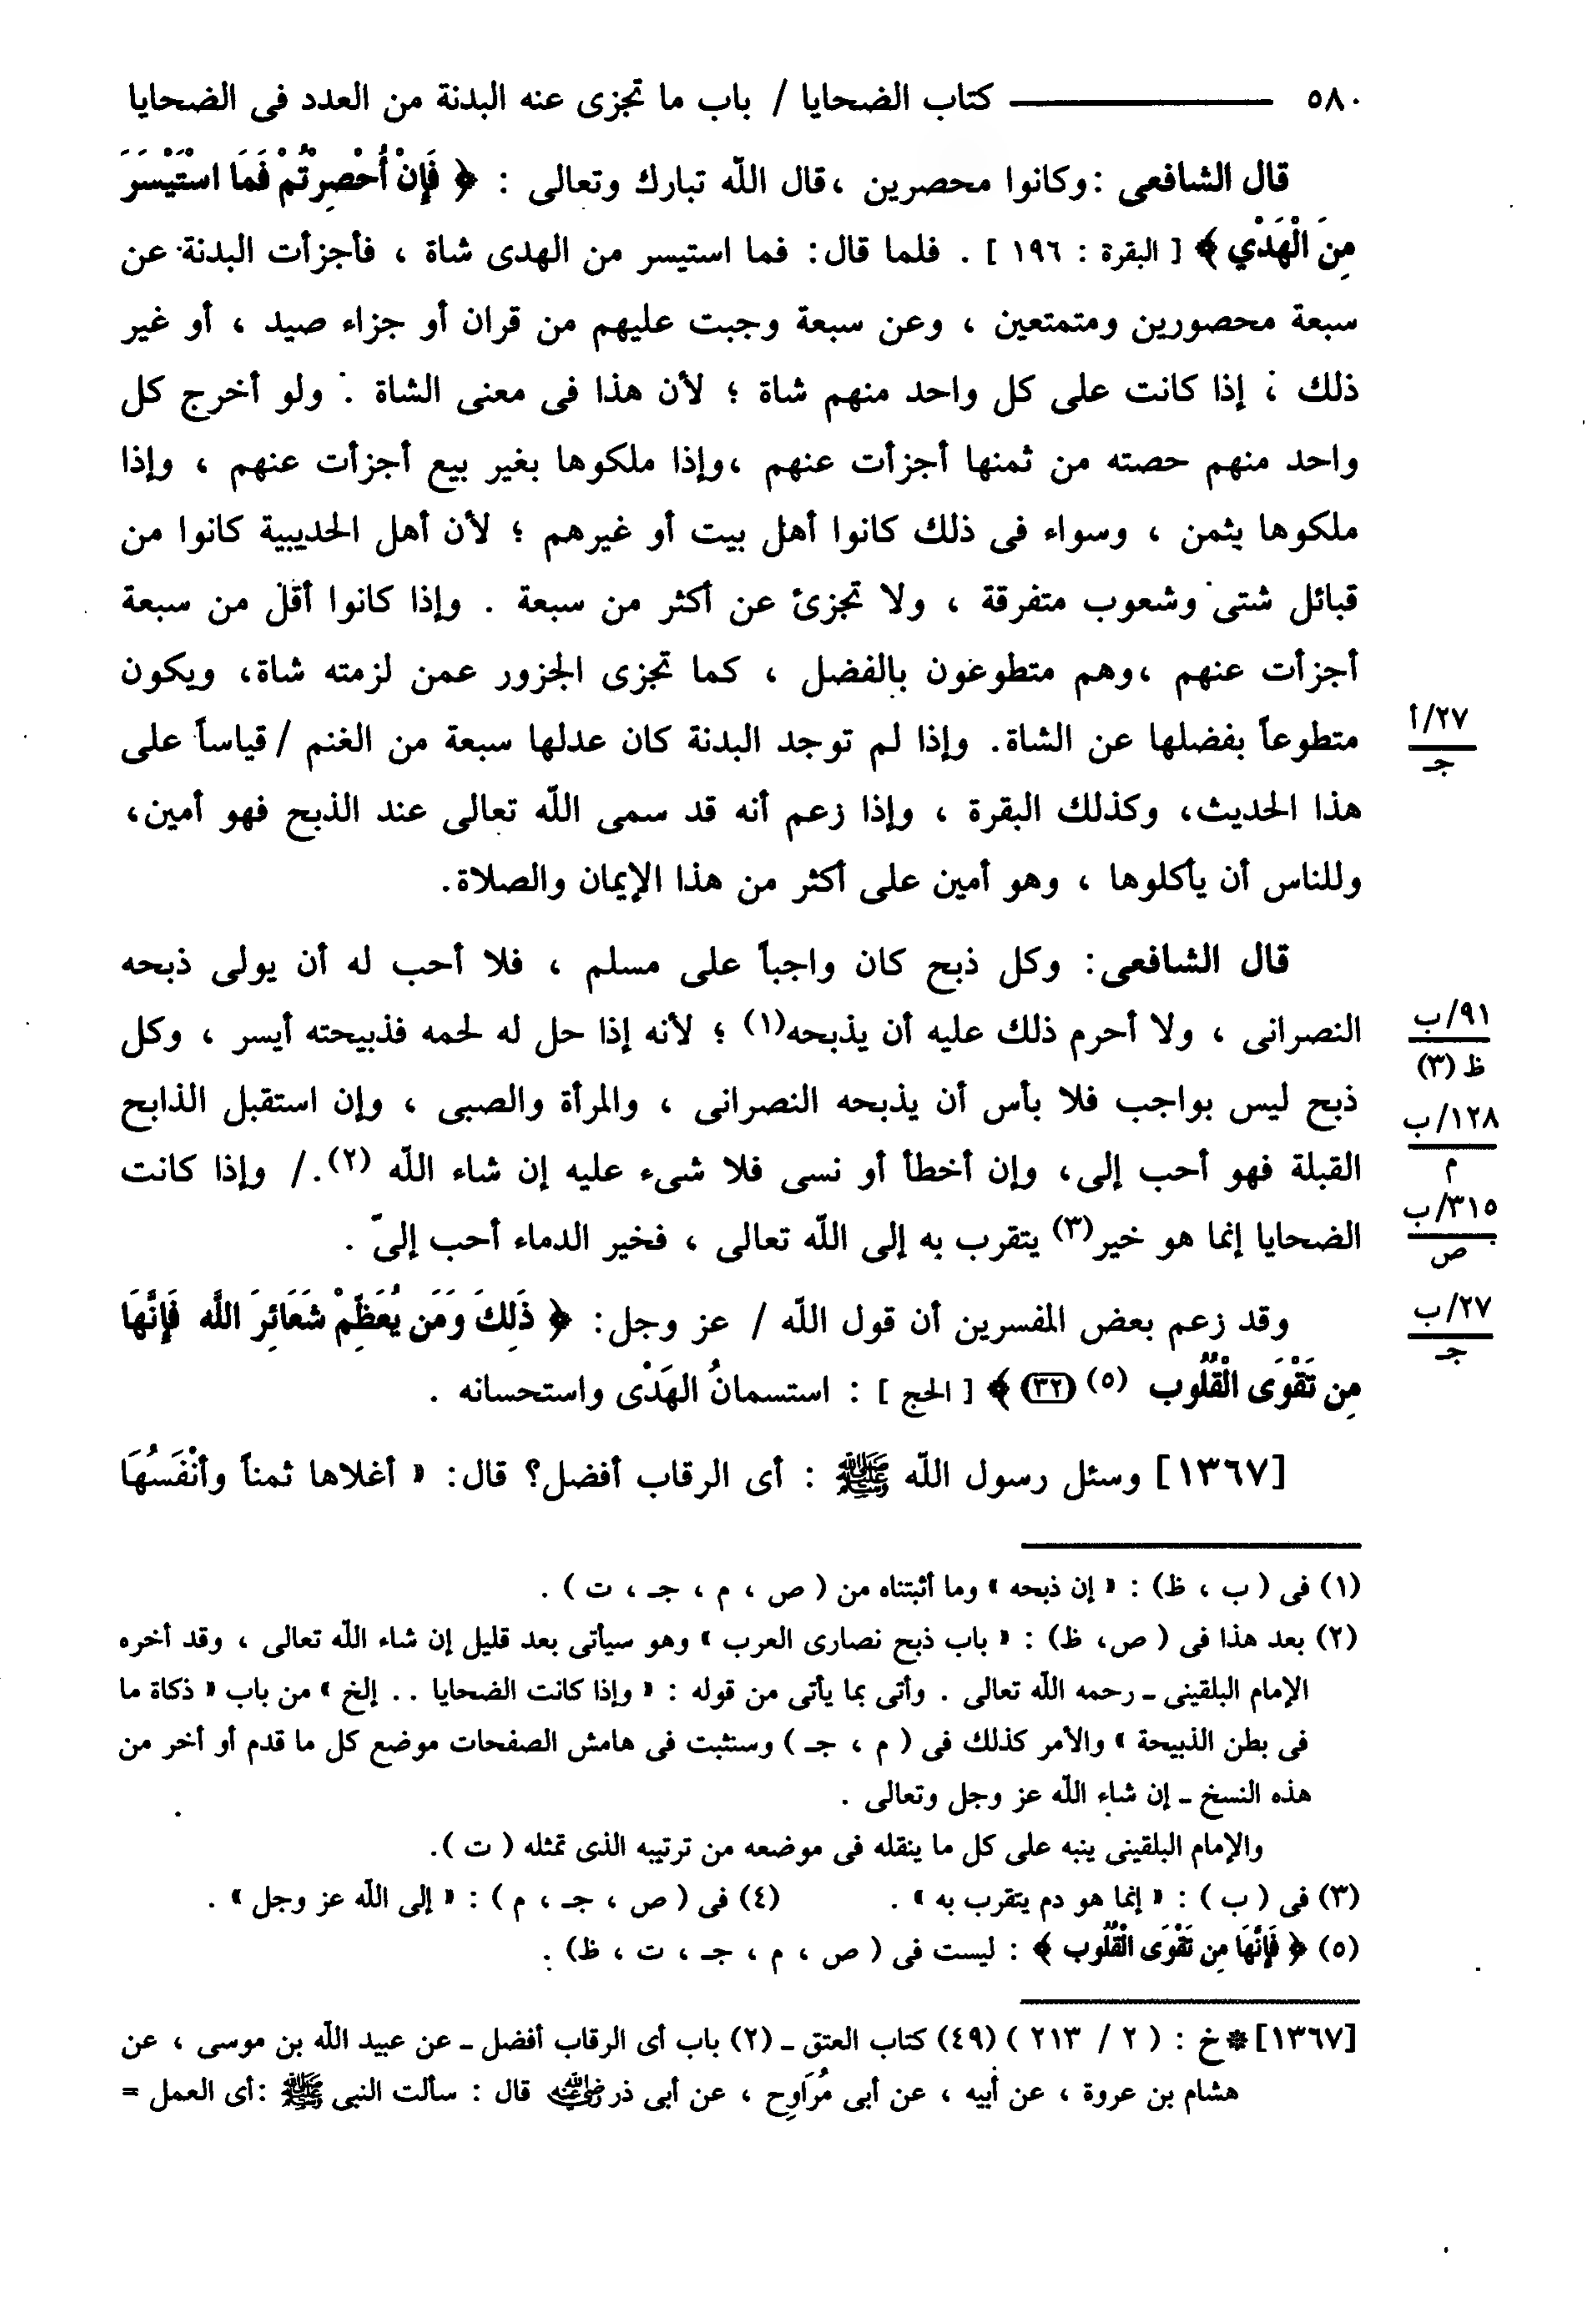 ٥٨٠ ــــــــــــ كتاب الضحايا / باب ما تجزى عنه البدنة من العدد فى الضحايا
قال الشافعى : وكانوا محصرين ، قال اللّه تبارك وتعالى : ﴿ فَإِنْ أُحْصِرْتُمْ فَمَا اسْتَيْسَرَ
مِنَ الْهَدْيِ ﴾ [ البقرة : ١٩٦ ] . فلما قال: فما استيسر من الهدى شاة ، فأجزأت البدنة عن
سبعة محصورين ومتمتعين ، وعن سبعة وجبت عليهم من قران أو جزاء صيد ، أو غير
ذلك ؛ إذا كانت على كل واحد منهم شاة ؛ لأن هذا فى معنى الشاة . ولو أخرج كل
واحد منهم حصته من ثمنها أجزأت عنهم ، وإذا ملكوها بغير بيع أجزأت عنهم ، وإذا
ملكوها بثمن ، وسواء فى ذلك كانوا أهل بيت أو غيرهم ؛ لأن أهل الحديبية كانوا من
قبائل شتى وشعوب متفرقة ، ولا تجزئ عن أكثر من سبعة . وإذا كانوا أقل من سبعة
أجزأت عنهم ، وهم متطوعون بالفضل ، كما تجزى الجزور عمن لزمته شاة، ويكون
٢٧/أ
متطوعاً بفضلها عن الشاة. وإذا لم توجد البدنة كان عدلها سبعة من الغنم / قياساً على
جـ
هذا الحديث، وكذلك البقرة ، وإذا زعم أنه قد سمى اللّه تعالى عند الذبح فهو أمين،
وللناس أن يأكلوها ، وهو أمين على أكثر من هذا الإيمان والصلاة.
قال الشافعى: وكل ذبح كان واجباً على مسلم ، فلا أحب له أن يولى ذبحه
٩١/ب
النصرانى ، ولا أحرم ذلك عليه أن يذبحه(١) ؛ لأنه إذا حل له لحمه فذبيحته أيسر ، وكل
ظ (٣)
ذبح ليس بواجب فلا بأس أن يذبحه النصرانى ، والمرأة والصبى ، وإن استقبل الذابح
١٢٨/ب
القبلة فهو أحب إلى، وإن أخطأ أو نسى فلا شىء عليه إن شاء اللّه (٢)./ وإذا كانت
م
٣١٥/ب
الضحايا إنما هو خير(٣) يتقرب به إلى اللّه تعالى ، فخير الدماء أحب إلىّ .
ص
وقد زعم بعض المفسرين أن قول اللّه / عز وجل: ﴿ ذَلِكَ وَمَن يُعَظِّمْ شَعَائِرَ اللَّه فَإِنَّهَا
٢٧/ب
جـ
مِن تَقْوَى الْقُلُوب (٥) (٣٢) ﴾ [ الحج ] : استسمانُ الهَدْى واستحسانه .
[١٣٦٧] وسئل رسول اللّه ﷺ : أى الرقاب أفضل؟ قال: « أغلاها ثمناً وأنْفَسُهَا
(١) فى ( ب ، ظ) : « إن ذبحه » وما أثبتناه من ( ص ، م ، جـ ، ت ) .
(٢) بعد هذا فى ( ص، ظ) : « باب ذبح نصارى العرب » وهو سيأتى بعد قليل إن شاء اللّه تعالى ، وقد أخره
الإمام البلقينى ـ رحمه اللّه تعالى . وأتى بما يأتى من قوله : « وإذا كانت الضحايا .. إلخ » من باب « ذكاة ما
فى بطن الذبيحة » والأمر كذلك فى ( م ، جـ ) وسنثبت فى هامش الصفحات موضع كل ما قدم أو أخر من
هذه النسخ ـ إن شاء اللّه عز وجل وتعالى .
والإمام البلقينى ينبه على كل ما ينقله فى موضعه من ترتيبه الذى تمثله ( ت ).
(٣) فى ( ب ) : « إنما هو دم يتقرب به » . (٤) فى ( ص ، جـ ، م ) : « إلى اللّه عز وجل » .
(٥) ﴿ فَإِنَّهَا مِن تَقْوَى الْقُلُوب ﴾ : ليست فى ( ص ، م ، جـ ، ت ، ظ) .
[١٣٦٧] * خ : ( ٢ / ٢١٣ ) (٤٩) كتاب العتق ـ (٢) باب أى الرقاب أفضل ـ عن عبيد اللّه بن موسى ، عن
هشام بن عروة ، عن أبيه ، عن أبى مُرَاوِح ، عن أبى ذر رضي الله عنه قال : سألت النبى ﷺ :أى العمل =